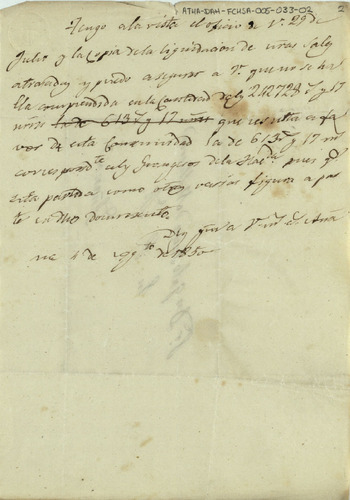 ATHA-DAH-FCHSA-005-033-02
2
Tengo a la vista el oficio de V. 29 de
Julio y la Copia de la liquidacion de esas Saly
atrasadas y puedo asegurar a V. que no se ha
lla comprendida en la Cantidad de 212728 y 17
que resulta en fa
vor de esta Comunidad la de 613 y 17 mrs
correspond.te a los Grangeros de la pues q.e
esta partida como otras varias figura a par
te en dho documento.
Dios gu̅e a V. m.s a.s Ana
ne 4 de Agg.to de 1850